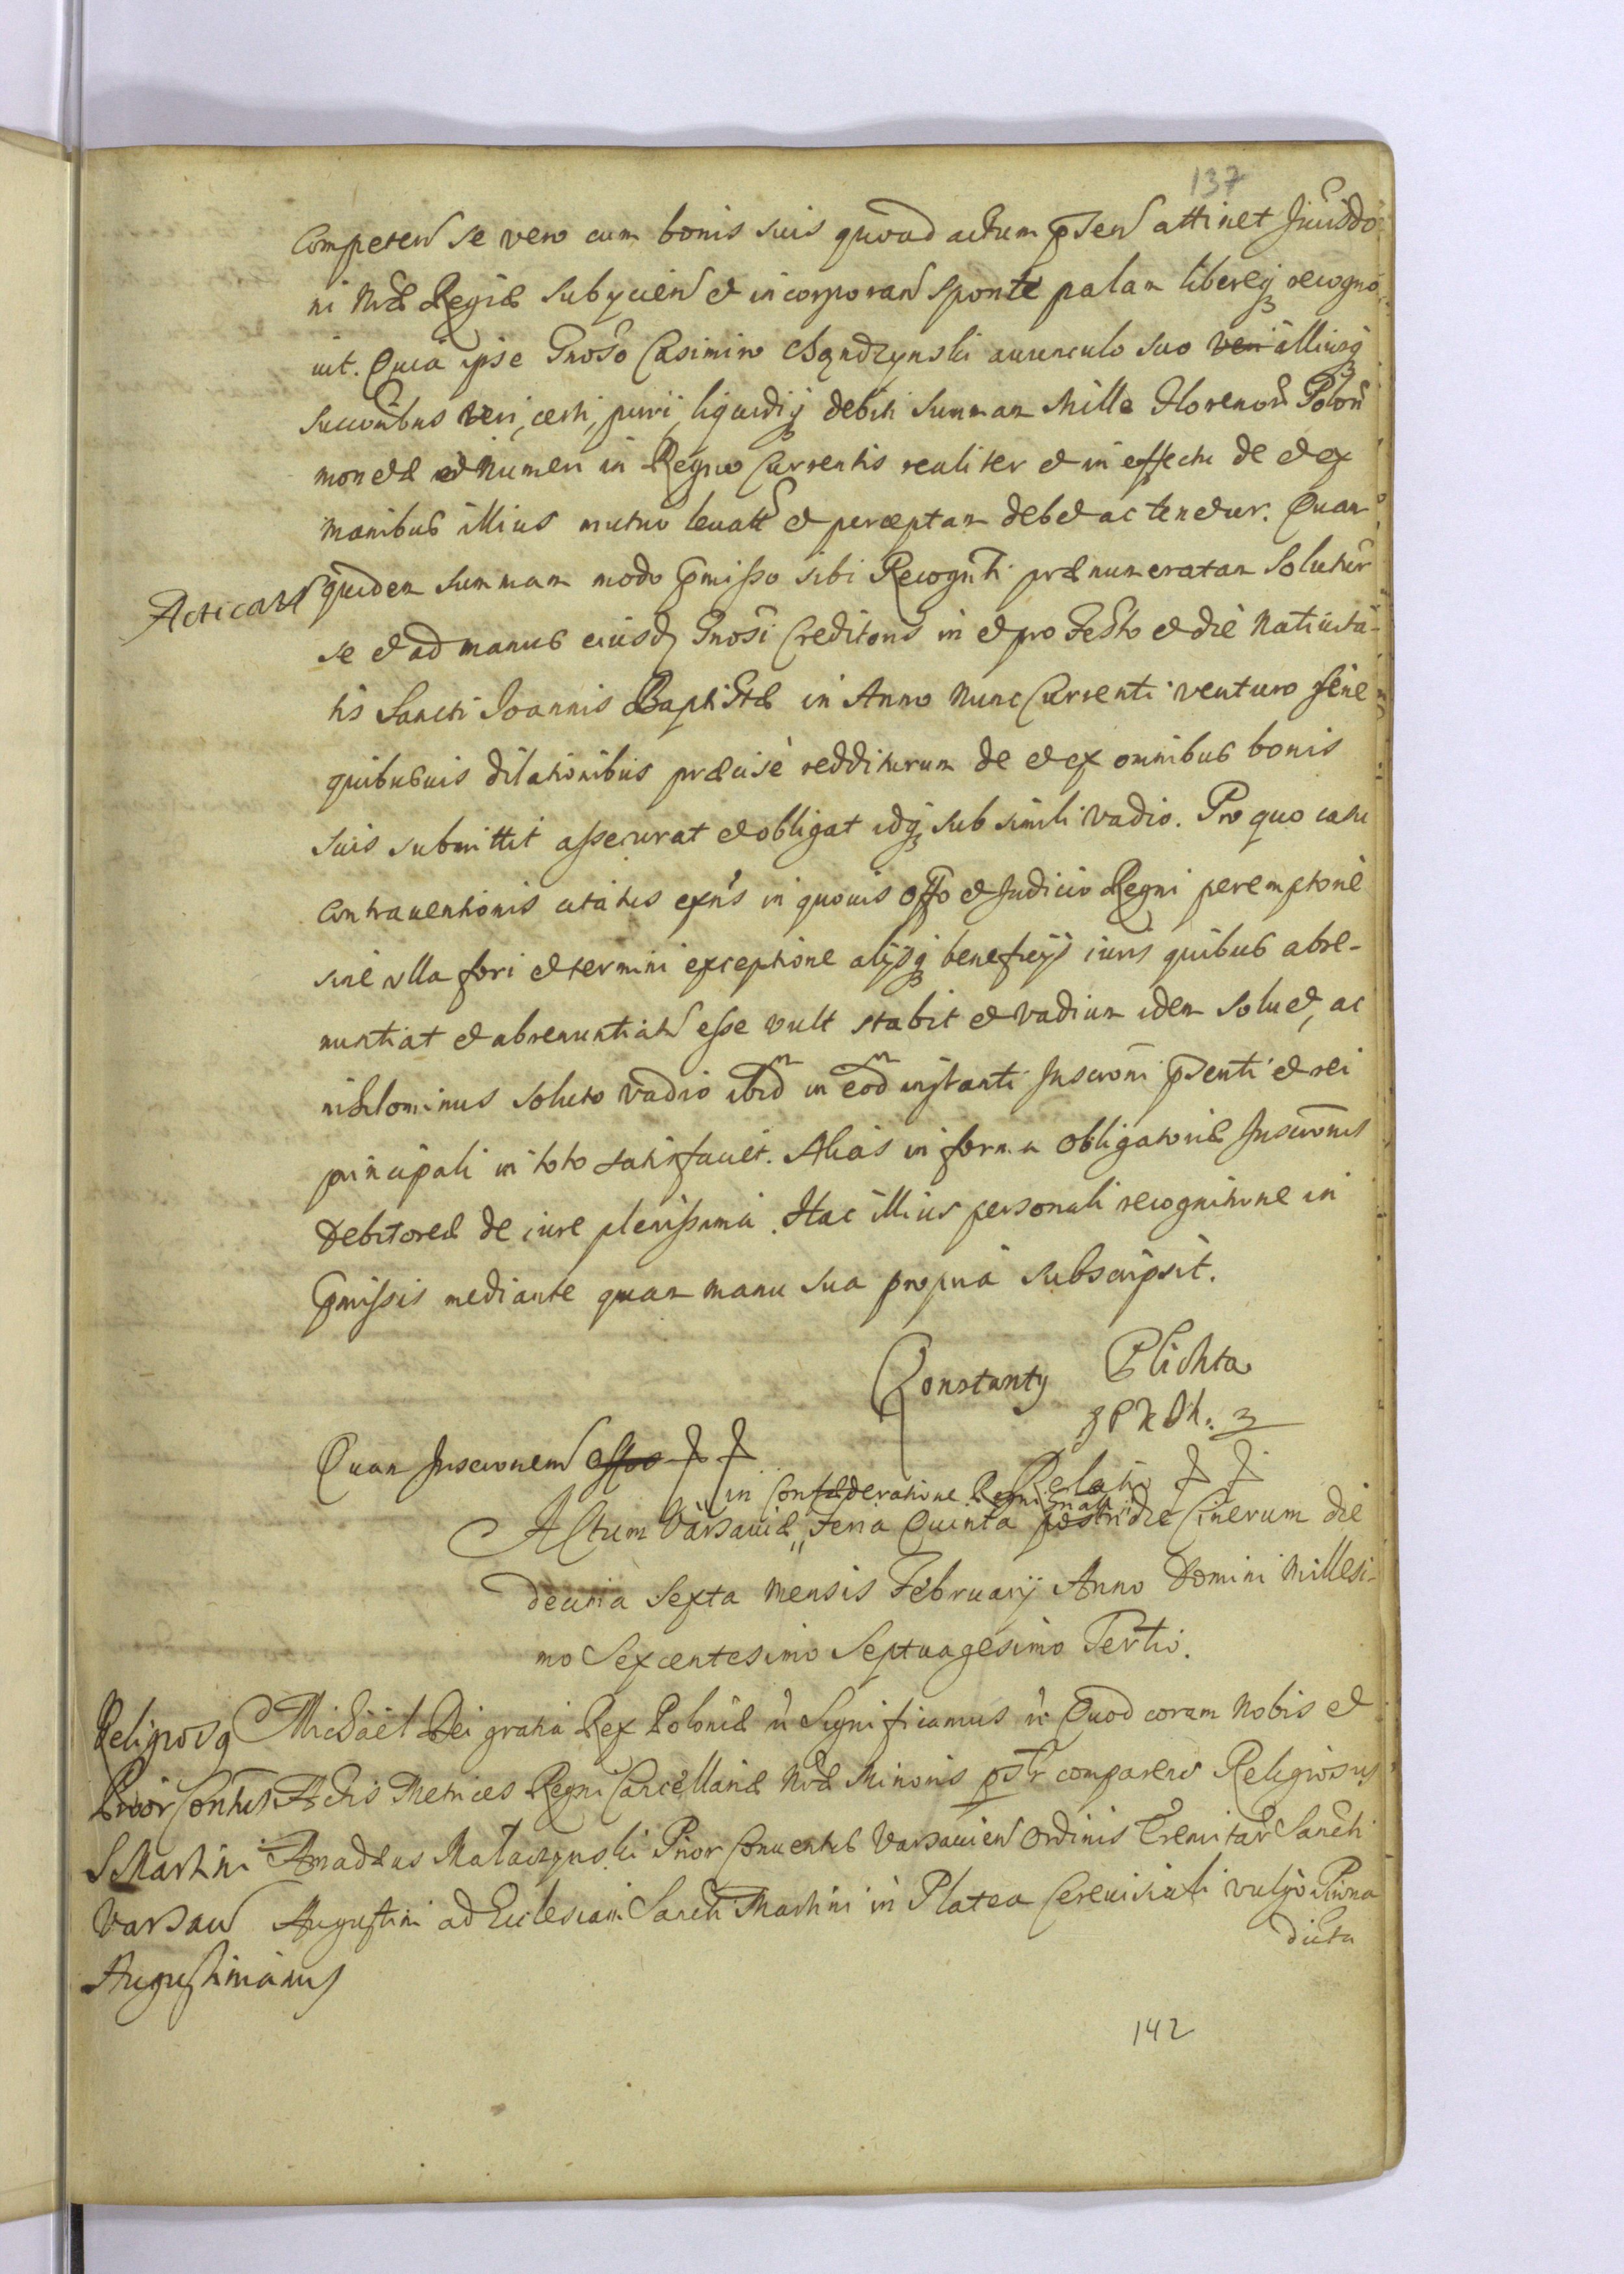 137
Competen se vero cum bonis suis quoad actum pnsen attinet Jurisdo
ni Nrae Regiae subycien et incorporan sponte palam libereq recogno
uit. Quia ipse Gnoso Casimiro auunculo suo veri illiusq
succoribus veri, certi, puri, liquidiq debiti summam Mille Florenor Polon
monetae et numeri in Regno Currentis realiter et in effectu de et ex
manibus illius mutuo leuat et perceptam debet ac tenetur. Quam
Acticat quidem summam modo pmisso sibi Recognti praenumeratam soluturu
se et ad manus eiusd Gnosi Creditoris in et pro Festo et die Natiuita-
tis Sancti Joannis Baptistae in Anno nunc Currenti venturo sine
quibusuis dilationibus praecisè redditurum de et ex omnibus bonis
suis submittit assecurat et obligat idq sub simili vadio. Pro quo casu
Contrauentionis citatus exns in quouis Offo et Judicio Regni peremptorie
sine vlla fori et termini exceptione alijsq beneficijs iuris quibus abre-
nuntiat et abrenuntiat esse vult stabit et vadium idem soluet, ac
nihilominus soluto vadio ibid in eod instanti Inscroni pnsenti et rei
principali in toto satisfaciet. Alias in forma Obligatoriae Inscronis
Debitoreae de iure plenissima. Hac illius personali recognitione in
pmissis mediante quam manu sua propria subscripsit.
Konstanty Plichta
Quam Inscronem
Relatio
in Confaederatione Regni Gnali
Actum Varsauiae Feria Quinta postridie Cinerum die
decima sexta mensis February Anno Domini Millesi-
mo Sexcentesimo Septuagesimo Tertio.
Religiosq Michaël Dei gratia Rex Poloniae Significamus Quod coram Nobis et
Prior Contus Actis Metrices Regni Cancellariae Nrae Minoris pslr comparens Religiosus
S Martini Amadeus Prior Conuentus Varsauien Ordinis Eremitar Sancti
Varsau Augustini ad Ecclesiam Sancti Martini in Platea Cereuisiali vulgo Piwna
dicta
Augustinianus
142